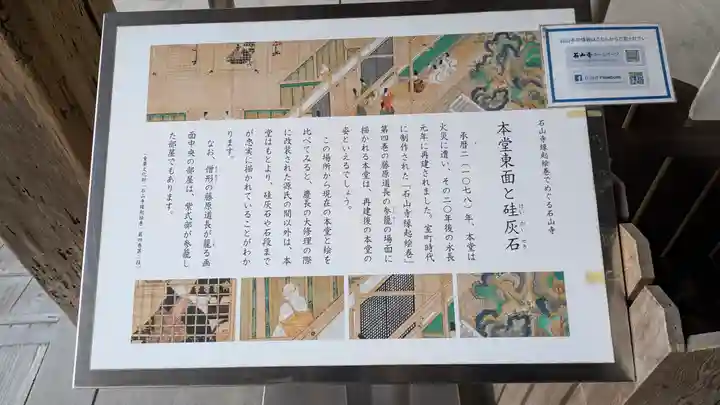 石山寺縁起絵巻でめぐる石山寺
本堂東面と硅灰石
けい かい せき
承暦二(一〇七八)年、本堂は
火災に遭い、その二〇年後の永長
元年に再建されました。室町時代
に制作された「石山寺縁起絵巻」
第四巻の藤原道長の参籠の場面に
描かれる本堂は、再建後の本堂の
姿といえるでしょう。
この場所から現在の本堂と絵を
比べてみると、慶長の大修理の際
に改装された源氏の間以外は、本
堂はもとより、硅灰石や石段まで
が忠実に描かれていることがわか
ります。
なお、僧形の藤原道長が籠る画
面中央の部屋は、紫式部が参籠し
た部屋でもあります。
石山寺の情報はこちらからご覧ください
石山寺ホームページ